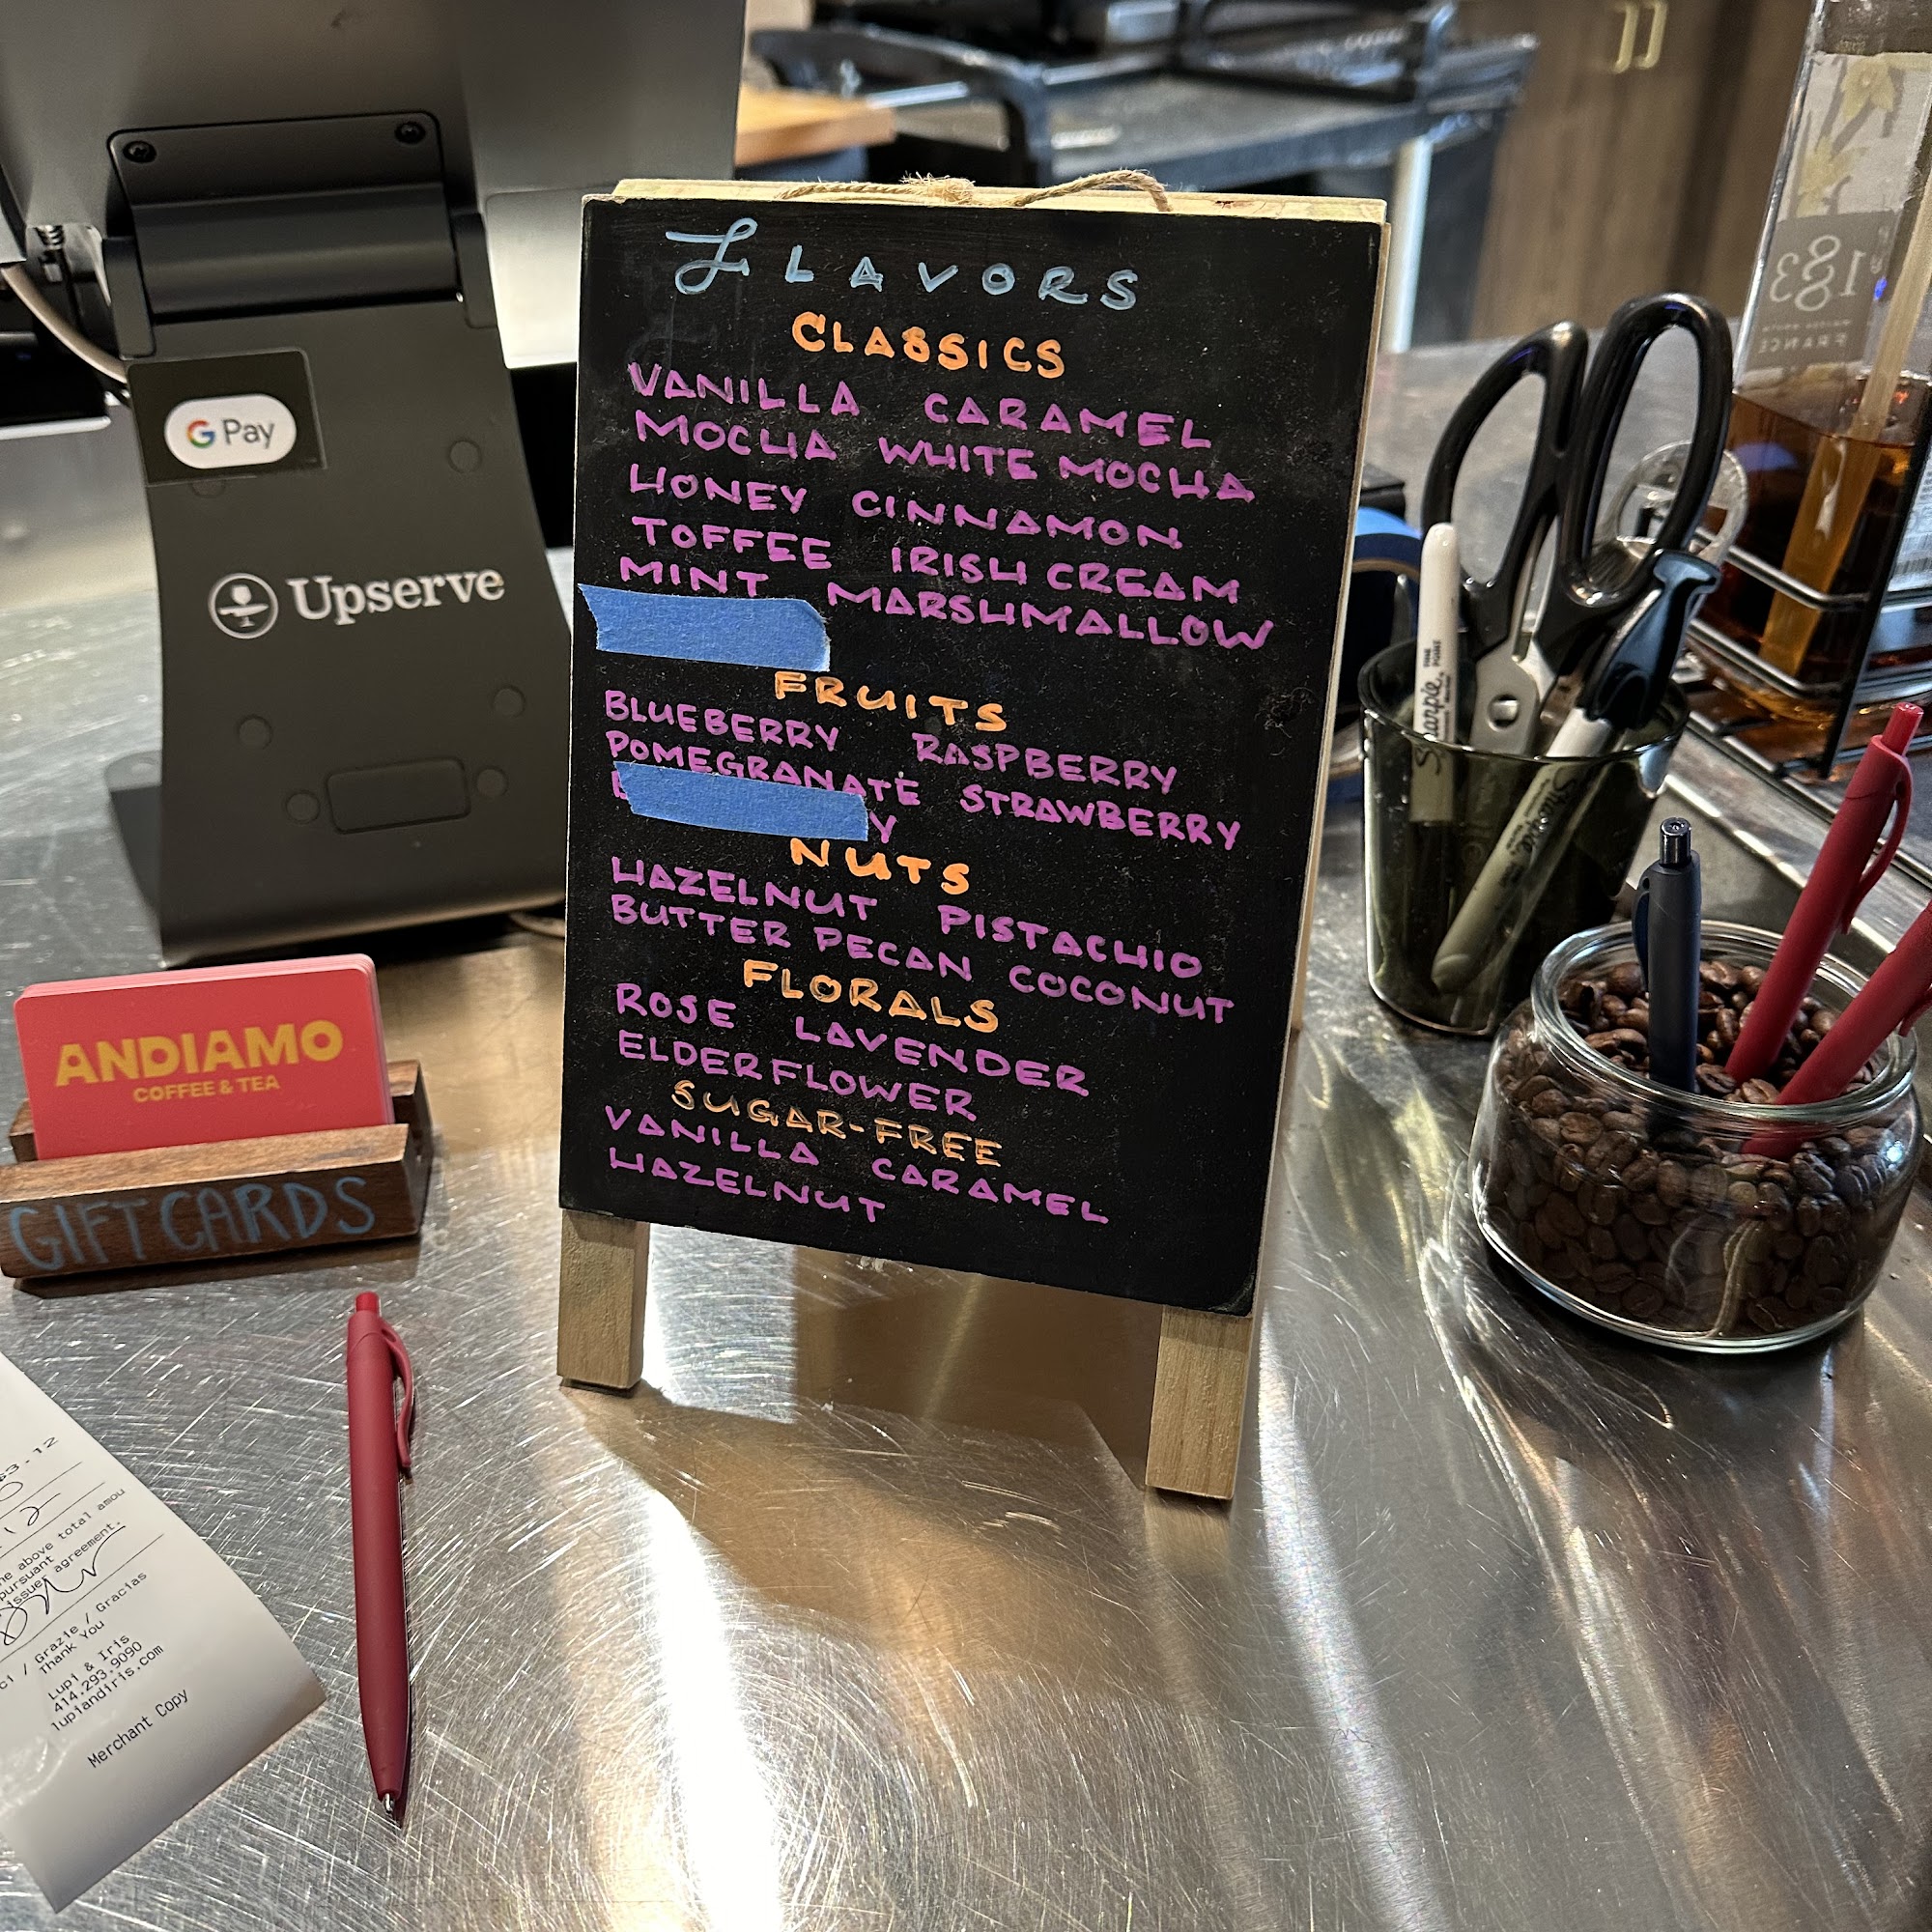 FLAVORS
CLASSICS
VANILLA CARAMEL
MOCHA WHITE MOCHA
HONEY CINNAMON
TOFFEE IRISH CREAM
MINT MARSHMALLOW
FRUITS
BLUEBERRY RASPBERRY
POMEGRANATE STRAWBERRY
NUTS
HAZELNUT PISTACHIO
BUTTER PECAN COCONUT
FLORALS
ROSE LAVENDER
ELDERFLOWER
SUGAR-FREE
VANILLA CARAMEL
HAZELNUT
G Pay
Upserve
ANDIAMO
COFFEE & TEA
GIFT CARDS
above total amou
pursuant
issuer agreement.
/ Grazie / Gracias
Thank You
Lupi & Iris
414.293.9090
lupiandiris.com
Merchant Copy
Sharpie
Sharpie
183
FRANCE